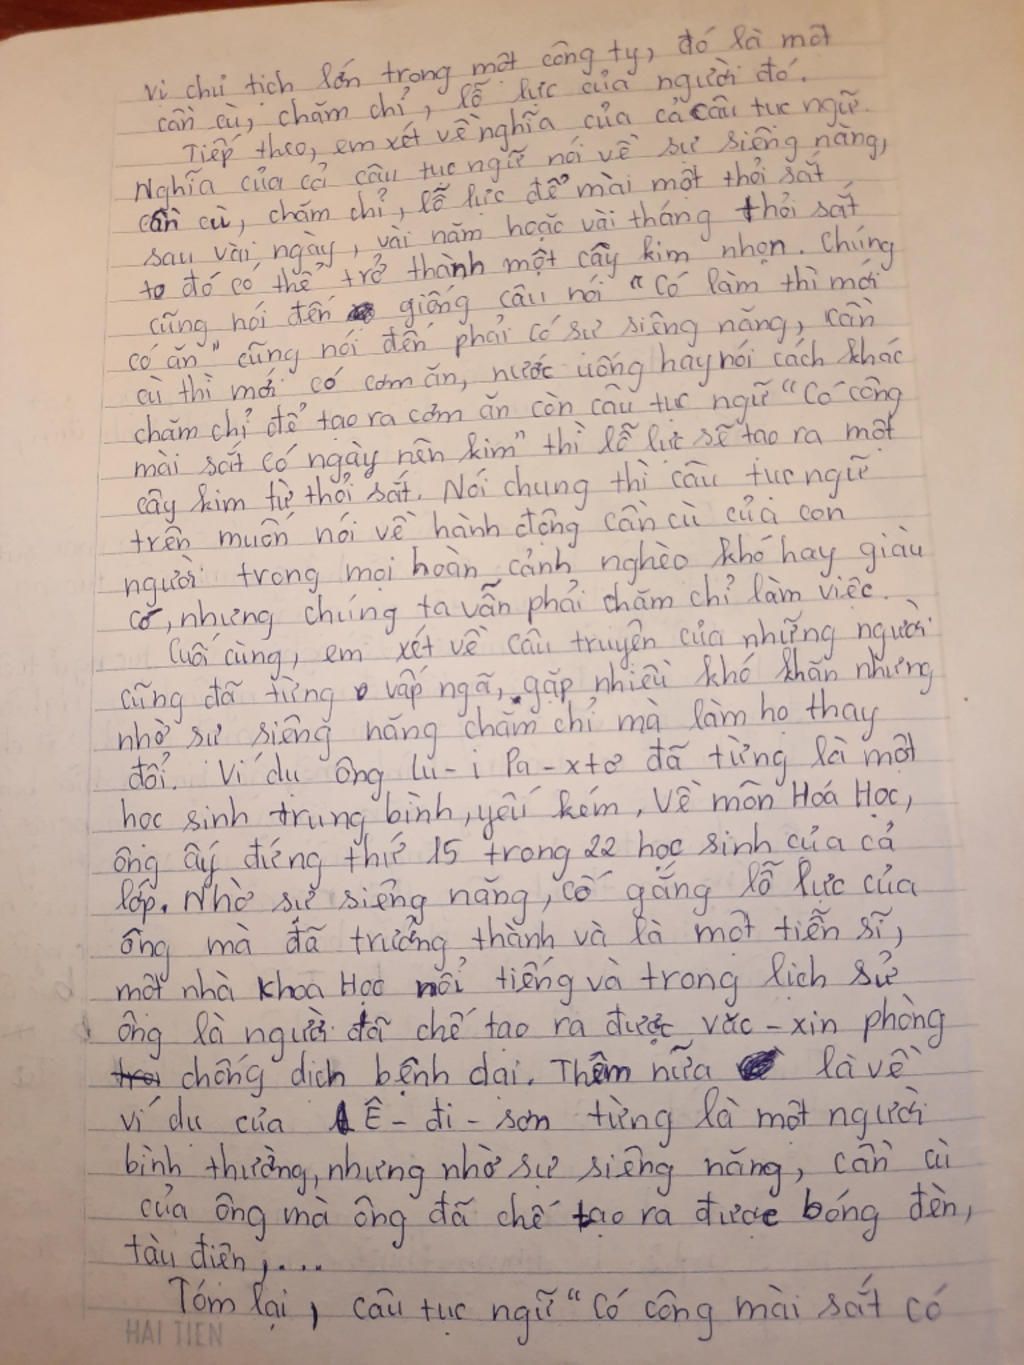 vị chủ tịch lớn trong một công ty, đó là một
cần cù, chăm chỉ, lỗ lực của người đó.
Tiếp theo, em xét về nghĩa của cả câu tục ngữ.
Nghĩa của cả câu tục ngữ nói về sự siêng năng,
cần cù, chăm chỉ, lỗ lực để mài một thỏi sắt
sau vài ngày, vài năm hoặc vài tháng thỏi sắt
to đó có thể trở thành một cây kim nhọn. Chúng
cũng nói đến giống câu nói "Có làm thì mới
có ăn" cũng nói đến phải có sự siêng năng, cần
cù thì mới có cơm ăn, nước uống hay nói cách khác
chăm chỉ để tạo ra cơm ăn còn câu tục ngữ "Có công
mài sắt có ngày nên kim" thì lỗ lực sẽ tạo ra một
cây kim từ thỏi sắt. Nói chung thì câu tục ngữ
trên muốn nói về hành động cần cù của con
người trong mọi hoàn cảnh nghèo khó hay giàu
có, nhưng chúng ta vẫn phải chăm chỉ làm việc.
Cuối cùng, em xét về câu truyện của những người
cũng đã từng vấp ngã, gặp nhiều khó khăn nhưng
nhờ sự siêng năng chăm chỉ mà làm họ thay
đổi. Ví dụ ông Lu-i Pa-xtơ đã từng là một
học sinh trung bình, yếu kém. Về môn Hoá Học,
ông ấy đứng thứ 15 trong 22 học sinh của cả
lớp. Nhờ sự siêng năng, cố gắng lỗ lực của
ông mà đã trưởng thành và là một tiến sĩ,
một nhà khoa Học nổi tiếng và trong lịch sử
ông là người đã chế tạo ra được vắc-xin phòng
chống dịch bệnh dại. Thêm nữa là về
ví dụ của Ê-đi-sơn từng là một người
bình thường, nhưng nhờ sự siêng năng, cần cù
của ông mà ông đã chế tạo ra được bóng đèn,
tàu điện,....
Tóm lại, câu tục ngữ "Có công mài sắt có
HẢI TIẾN